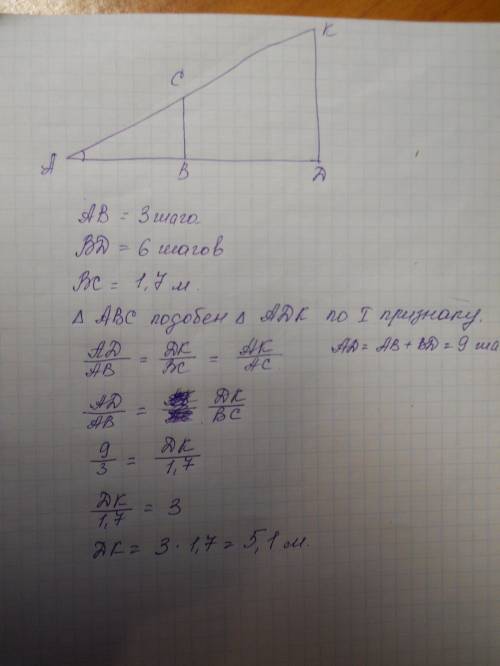 К
С
А
В
D
АВ = 3 шага.
BD = 6 шагов
BC = 1,7 м.
Δ АВС подобен Δ ADK по I признаку.
AD/AB = DK/BC = AK/AC AD = AB + BD = 9 ша
AD/AB = DK/BC
9/3 = DK/1,7
DK/1,7 = 3
DK = 3 · 1,7 = 5,1 м.